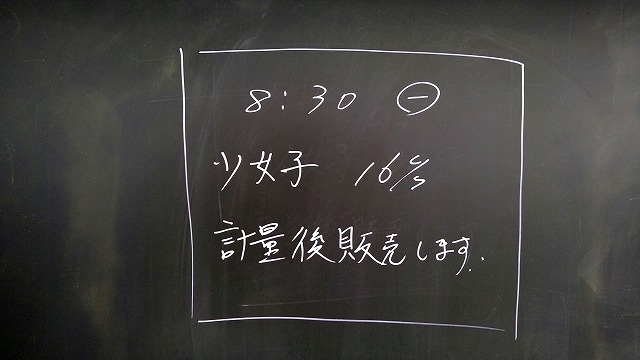 8:30 ㊀
少女子 16c/s
計量後販売します.